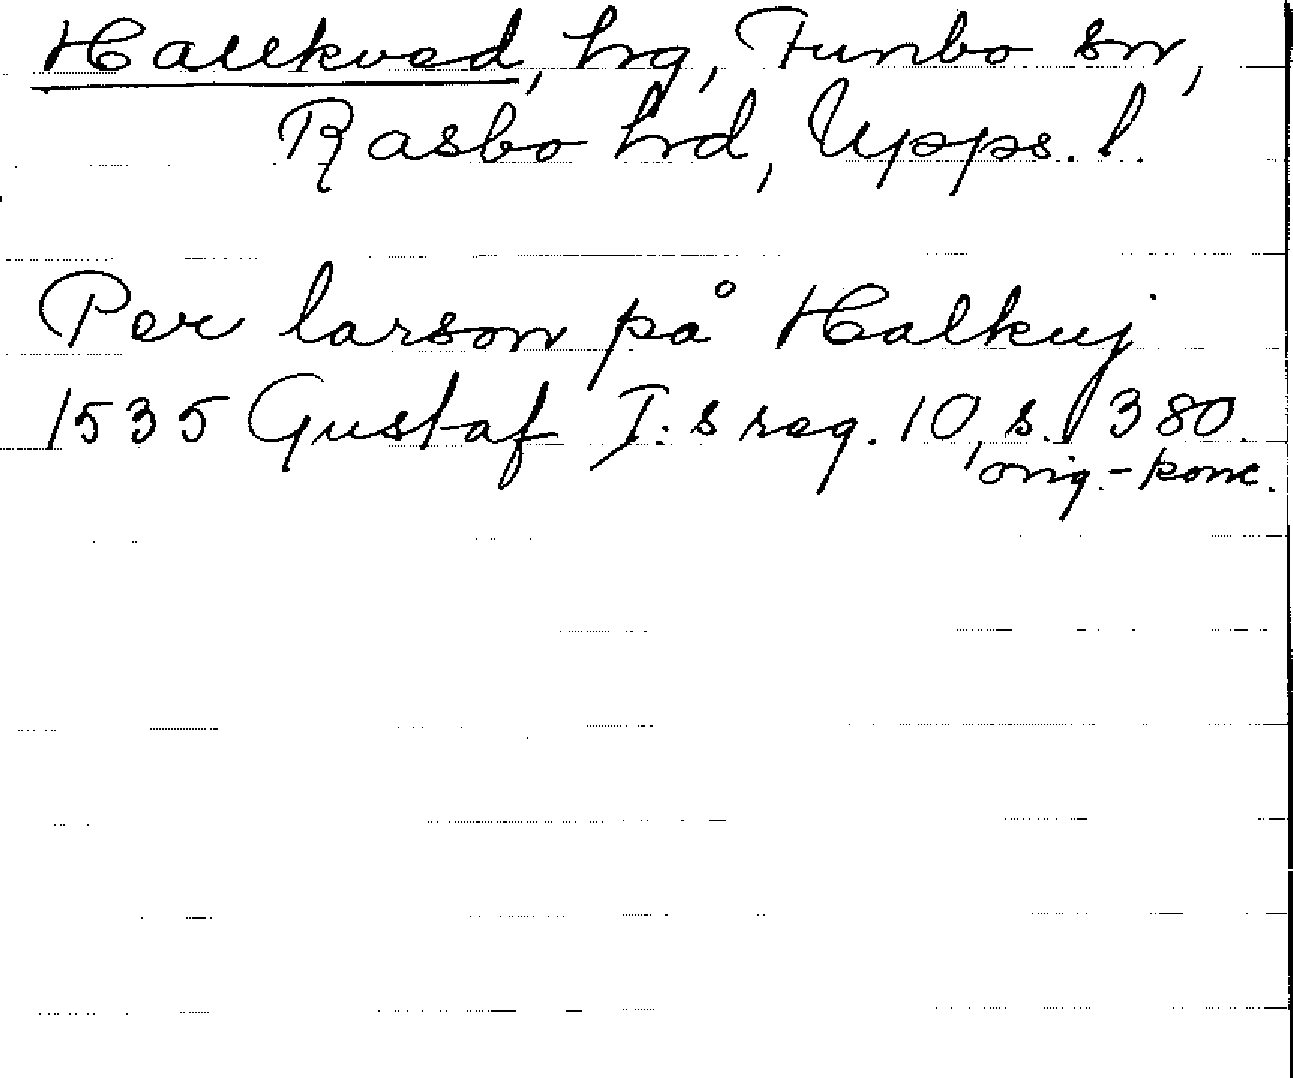 Hallkved, hg, Funbo sn,
Rasbo hd, Upps. l.
Per larson på Halkuj
1535 Gustaf I:s reg. 10, s. 380.
orig.-konc.